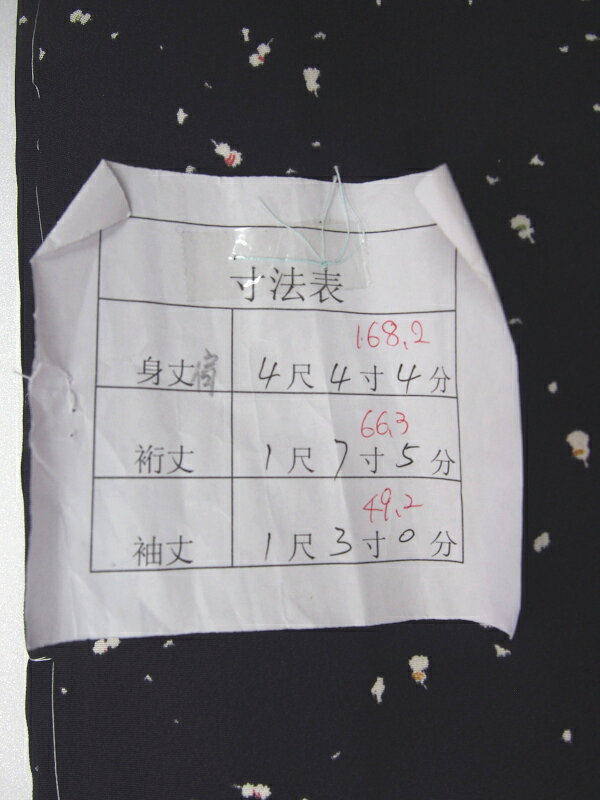 寸法表
168.2
身丈 4尺4寸4分
66.3
裄丈 1尺7寸5分
49.2
袖丈 1尺3寸0分